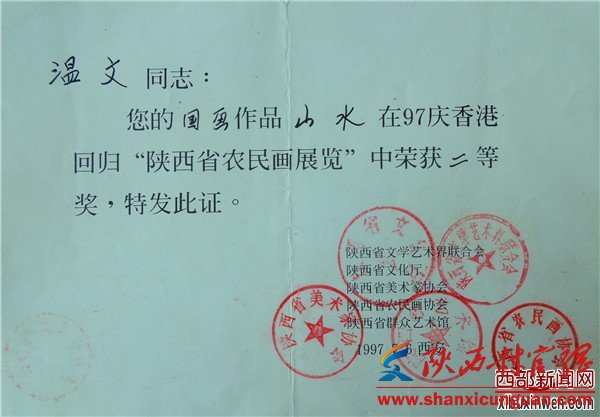 温文同志：
您的国画作品山水在97庆香港
回归“陕西省农民画展览”中荣获二等
奖，特发此证。
陕西省文学艺术界联合会
陕西省文化厅
陕西省美术家协会
陕西省农民画协会
陕西省群众艺术馆
1997 6 西安
陕西省美术家协会
省农民画协会
陕西村官网
www.shanxicunguan.com
西部新闻网